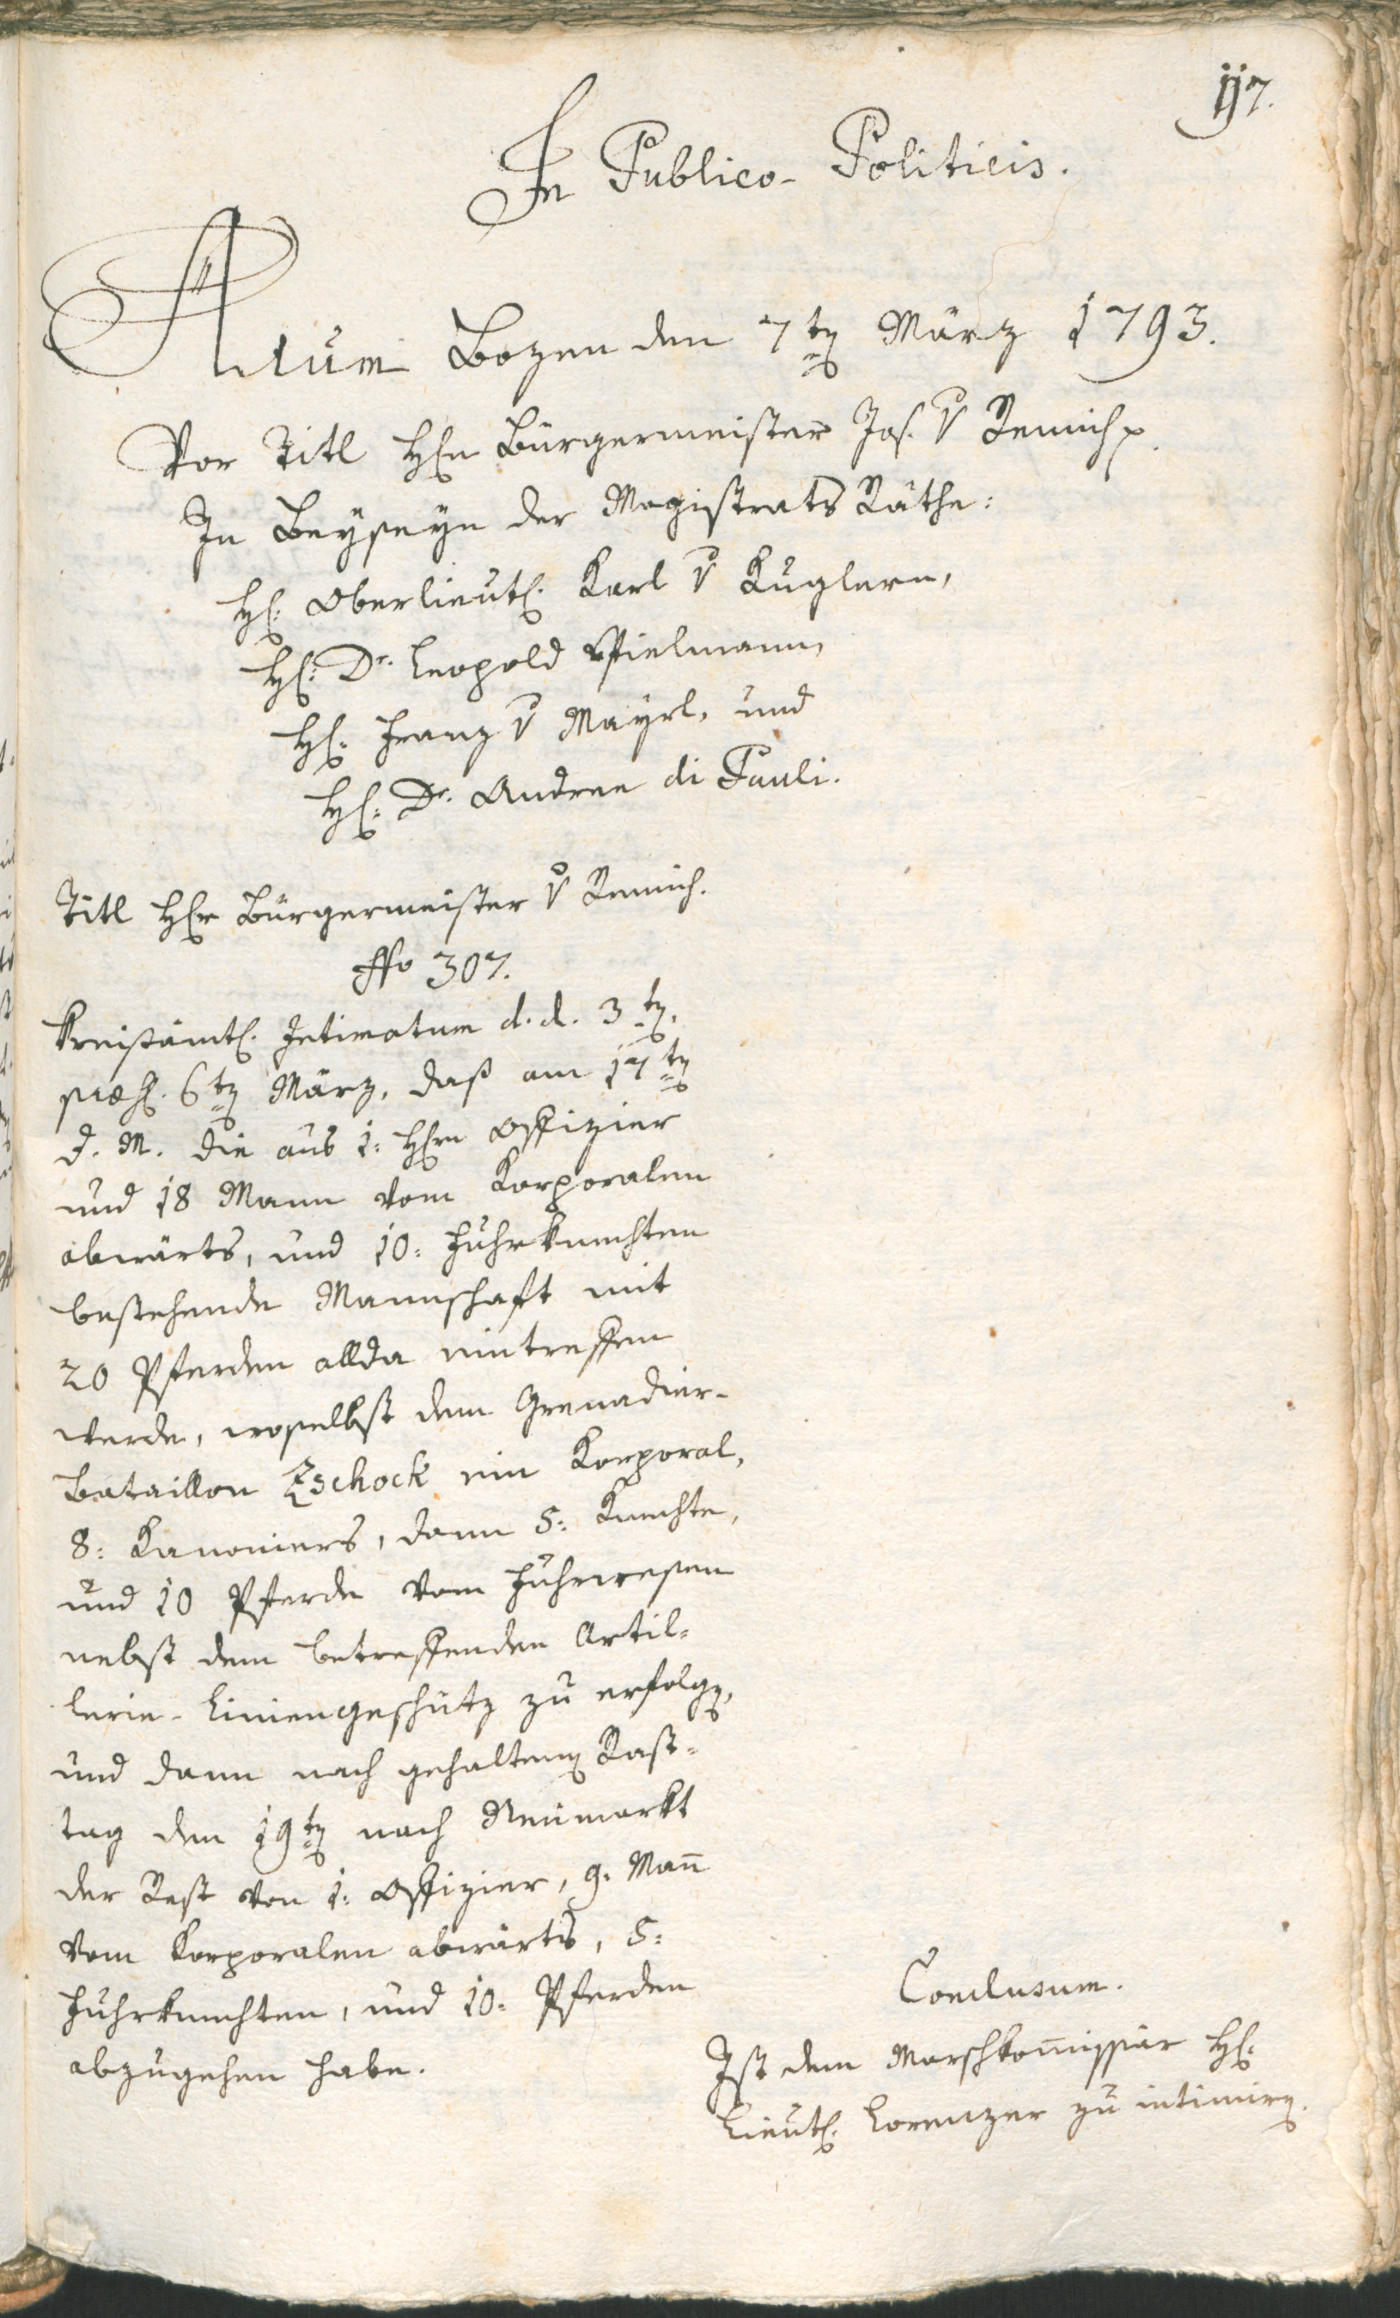 117.
In Publico-Politicis.
Actum Bozen den 7ten März 1793.
Vor Titl Hℓn Bürgermeister Jos. v Remich p.
In Beyseyn der Magistrats Räthe:
Hℓ: Oberlieutℓ. Karl v Kuglern,
Hℓ: Dr. Leopold Vielmann,
Hℓ: Franz v Mayrl, und
Hℓ: Dr. Andree di Pauli.
Titl Hℓr Bürgermeister v Remich.
Nro 307.
Kreisämtℓ. Intimatum d. d. 3ten,
præsℓ. 6ten März, daß am 17ten
d. M. die aus 1: Hℓrn Offizier
und 18 Mann vom Korporalen
abwärts, und 10: Fuhrknechten
bestehende Mannschaft mit
20 Pferden allda eintreffen
werde, woselbst dem Grenadier-
Bataillon Zschock ein Korporal,
8: Kanoniers, dann 5: Knechte,
und 10 Pferde vom Fuhrwesen
nebst dem betreffenden Artil-
lerie-Liniengeschütz zu erfolgen,
und dann nach gehaltenen Rast-
tag den 19ten nach Neumarkt
der Rest von 1: Offizier, 9. Mañ
vom Korporalen abwärts, 5:
Fuhrknechten, und 10: Pferden
abzugehen habe.
Conclusum.
Ist dem Marschkom̄issär Hℓ:
Lieutℓ. Lorenzer zu intimiren.